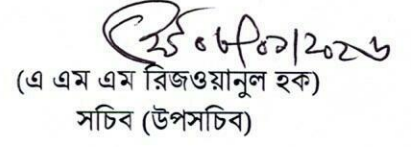 ০৮/০১/২০২৬
(এ এম এম রিজওয়ানুল হক)
সচিব (উপসচিব)